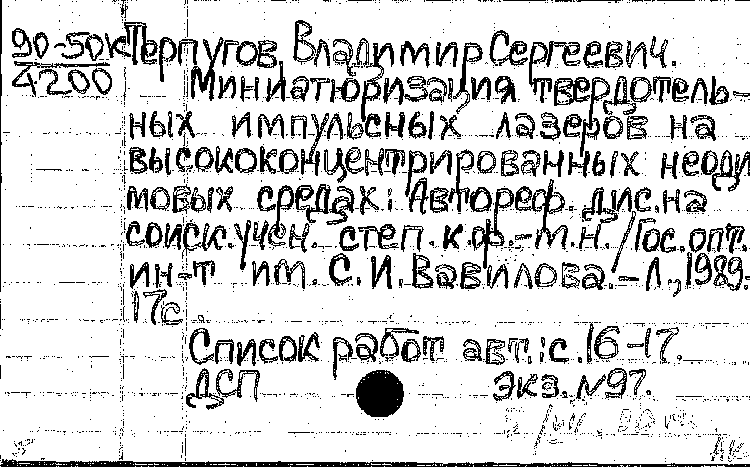 90-50к Терпугов, Владимир Сергеевич.
4200 Миниатюризация твердотель-
ных импульсных лазеров на
высококонцентрированных неоди
мовых средах: Автореф. дис. на
соиск. учен. степ. к.ф.-м.н. / Гос. опт.
ин-т им. С. И. Вавилова. - Л., 1989.-
17с.
Список работ авт.: с. 16-17.
ДСП экз. №97.
АК